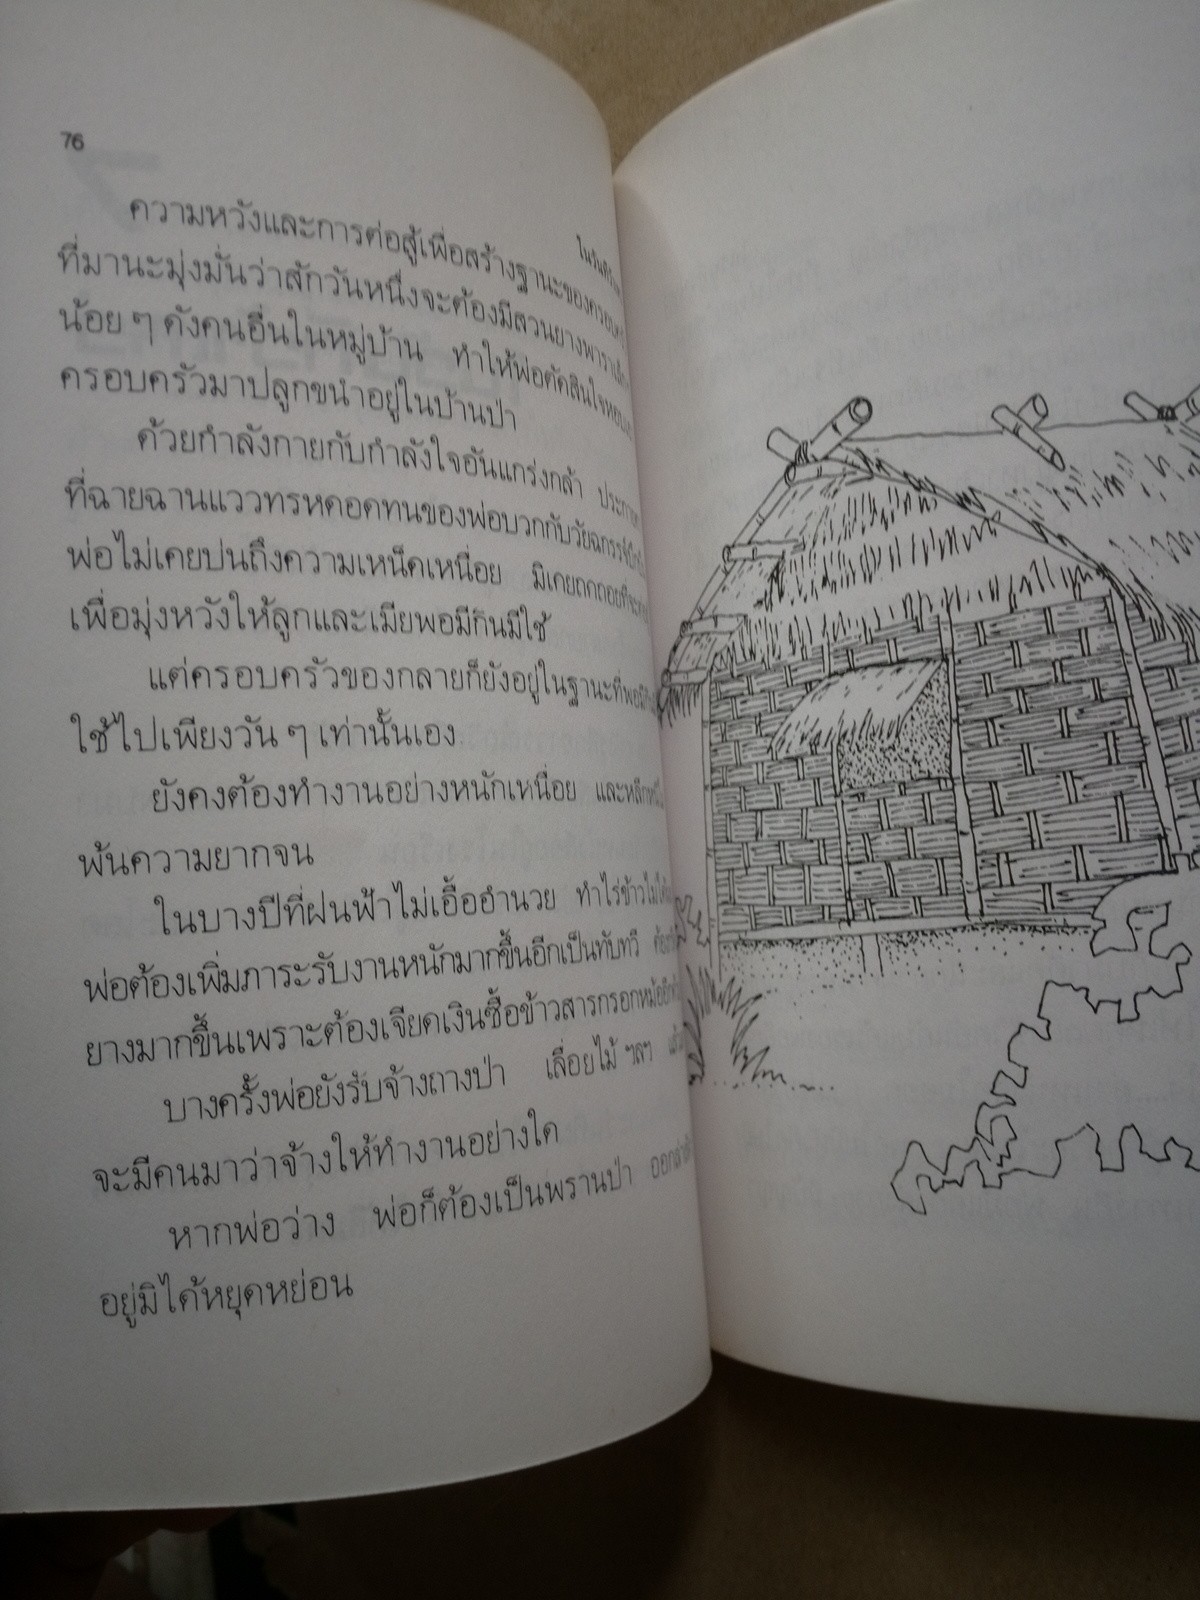 76
ความหวังและการต่อสู้เพื่อสร้างฐานะของครอบครัว
ที่มานะมุ่งมั่นว่าสักวันหนึ่งจะต้องมีสวนยางพารา
น้อย ๆ ดังคนอื่นในหมู่บ้าน ทำให้พ่อตัดสินใจ
ครอบครัวมาปลูกขนำอยู่ในบ้านป่า
ด้วยกำลังกายกับกำลังใจอันแกร่งกล้า
ที่ฉายฉานแววทรหดอดทนของพ่อบวกกับวัยฉกรรจ์
พ่อไม่เคยบ่นถึงความเหน็ดเหนื่อย มิเคยถดถอย
เพื่อมุ่งหวังให้ลูกและเมียพอมีกินมีใช้
แต่ครอบครัวของกลายก็ยังอยู่ในฐานะที่พอมี
ใช้ไปเพียงวัน ๆ เท่านั้นเอง
ยังคงต้องทำงานอย่างหนักเหนื่อย และหลีก
พ้นความยากจน
ในบางปีที่ฝนฟ้าไม่เอื้ออำนวย ทำไร่ข้าวไม่ได้
พ่อต้องเพิ่มภาระรับงานหนักมากขึ้นอีกเป็นทับทวี
ยางมากขึ้นเพราะต้องเจียดเงินซื้อข้าวสารกรอกหม้อ
บางครั้งพ่อยังรับจ้างถางป่า เลื่อยไม้ ฯลฯ
จะมีคนมาว่าจ้างให้ทำงานอย่างใด
หากพ่อว่าง พ่อก็ต้องเป็นพรานป่า
อยู่มิได้หยุดหย่อน